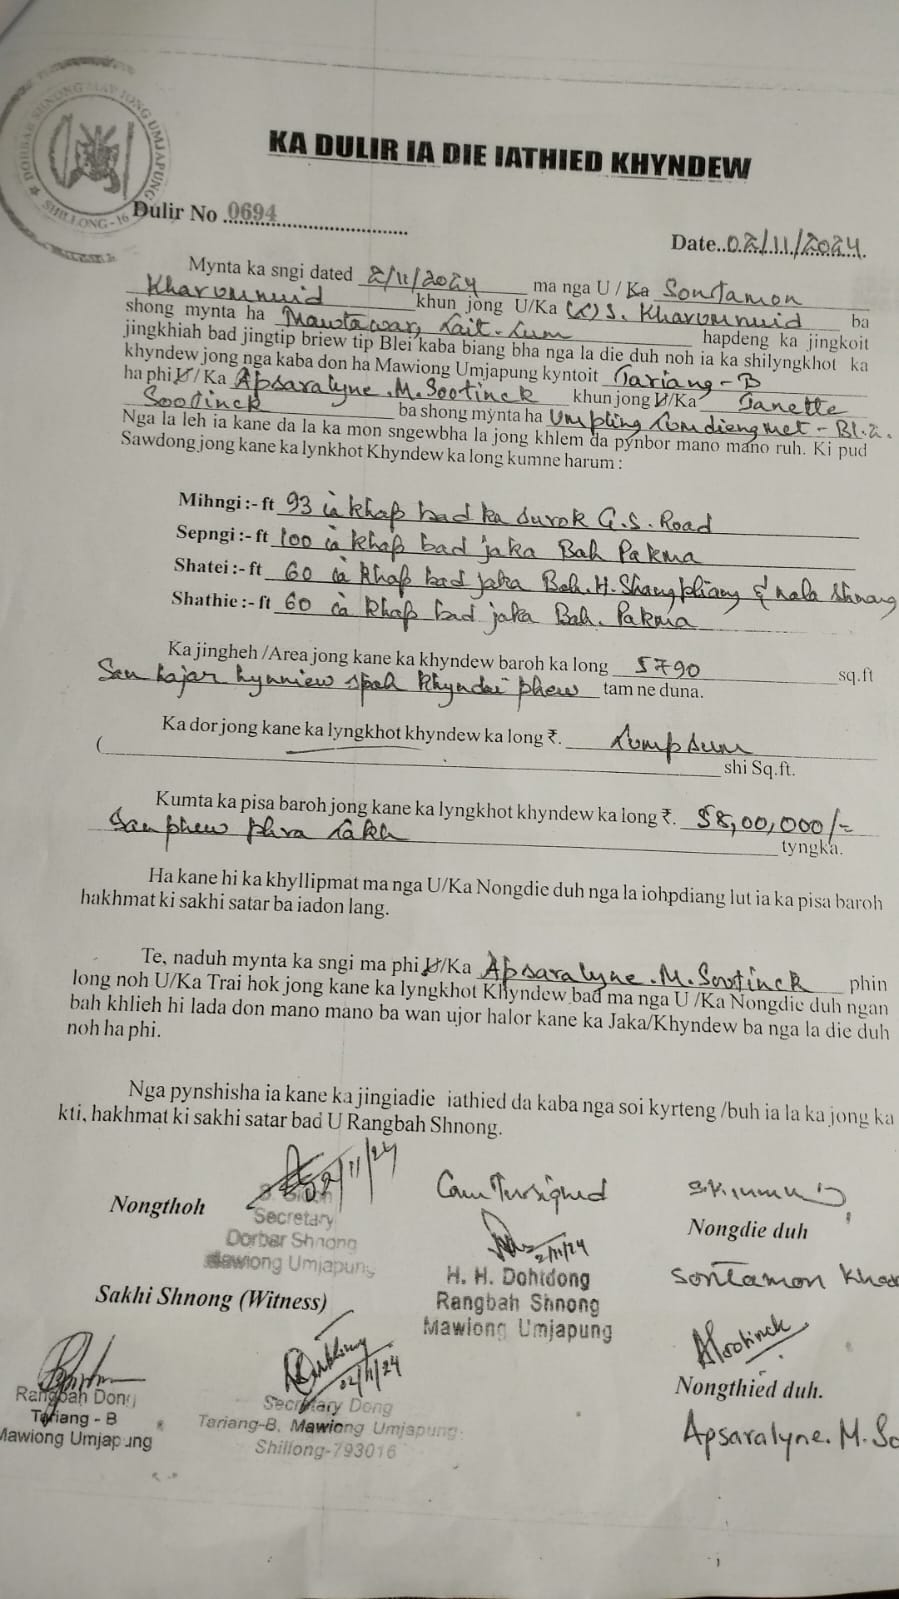 DORBAR SHNONG MAWIONG UMJAPUNG
SHILLONG-16
KA DULIR IA DIE IATHIED KHYNDEW
Dulir No 0694
Date..02/11/2024.
Mynta ka sngi dated 2/11/2024 ma nga U / Ka Sontamon
Kharumnuid khun jong U/Ka (L) S. Kharumnuid ba
shong mynta ha Mawtawar, Lait-Lum hapdeng ka jingkoit
jingkhiah bad jingtip briew tip Blei kaba biang bha nga la die duh noh ia ka shilyngkhot ka
khyndew jong nga kaba don ha Mawiong Umjapung kyntoit Tariang-B
ha phi U / Ka Apsaralyne .M. Sootinck khun jong U/Ka Janette
Sootinck ba shong mynta ha Umpling Lumdiengmet - Bl.
Nga la leh ia kane da la ka mon sngewbha la jong khlem da pynbor mano mano ruh. Ki pud
Sawdong jong kane ka lynkhot Khyndew ka long kumne harum :
Mihngi :- ft 93 ia khap bad ka surok G.S. Road
Sepngi :- ft 100 ia khap bad jaka Bah Pakma
Shatei :- ft 60 ia khap bad jaka Bah. H. Shangpliang & nala shnong
Shathie :- ft 60 ia khap bad jaka Bah. Pakma
Ka jingheh /Area jong kane ka khyndew baroh ka long 5790 sq.ft
San hajar hynniew spah khyndai phew tam ne duna.
Ka dor jong kane ka lyngkhot khyndew ka long ₹. Lump sum
( shi Sq.ft.
Kumta ka pisa baroh jong kane ka lyngkhot khyndew ka long ₹. 58,00,000/=
San phew phra lakh tyngka.
Ha kane hi ka khyllipmat ma nga U/Ka Nongdie duh nga la iohpdiang lut ia ka pisa baroh
hakhmat ki sakhi satar ba iadon lang.
Te, naduh mynta ka sngi ma phi U/Ka Apsaralyne .M. Sootinck phin
long noh U/Ka Trai hok jong kane ka lyngkhot Khyndew bad ma nga U /Ka Nongdie duh ngan
bah khlieh hi lada don mano mano ba wan ujor halor kane ka Jaka/Khyndew ba nga la die duh
noh ha phi.
Nga pynshisha ia kane ka jingiadie iathied da kaba nga soi kyrteng /buh ia la ka jong ka
kti, hakhmat ki sakhi satar bad U Rangbah Shnong.
02/11/24
Nongthoh
Secretary
Dorbar Shnong
Mawiong Umjapung
Countersigned
2/11/24
H. H. Dohtdong
Rangbah Shnong
Mawiong Umjapung
Nongdie duh
Sontamon Khar
Sakhi Shnong (Witness)
Rangbah Dong
Tariang - B
Mawiong Umjapung
02/11/24
Secretary Dong
Tariang-B, Mawiong Umjapung
Shillong-793016
ASootinck
Nongthied duh.
Apsaralyne. M. So